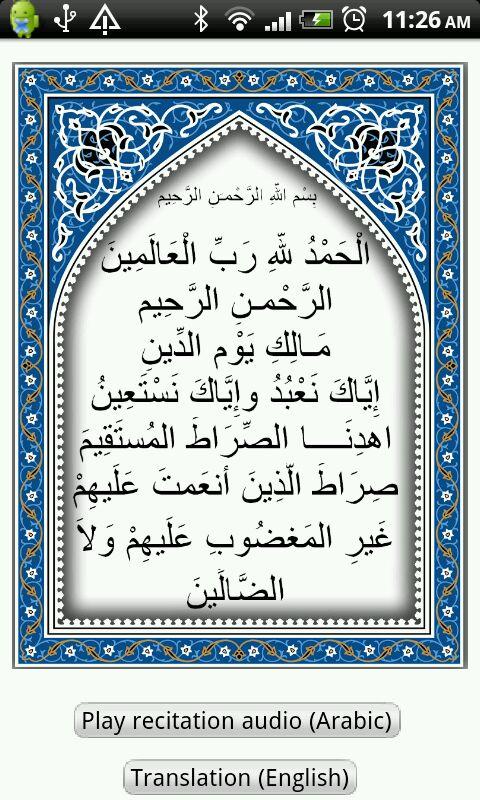 11:26 AM
بِسْمِ اللّهِ الرَّحْمـنِ الرَّحِيمِ
الْحَمْدُ للّهِ رَبِّ الْعَالَمِينَ
الرَّحْمـنِ الرَّحِيمِ
مَـالِكِ يَوْمِ الدِّينِ
إِيَّاكَ نَعْبُدُ وإِيَّاكَ نَسْتَعِينُ
اهدِنَــــا الصِّرَاطَ المُستَقِيمَ
صِرَاطَ الَّذِينَ أَنعَمتَ عَلَيهِمْ
غَيرِ المَغضُوبِ عَلَيهِمْ وَلاَ
الضَّالِّينَ
Play recitation audio (Arabic)
Translation (English)